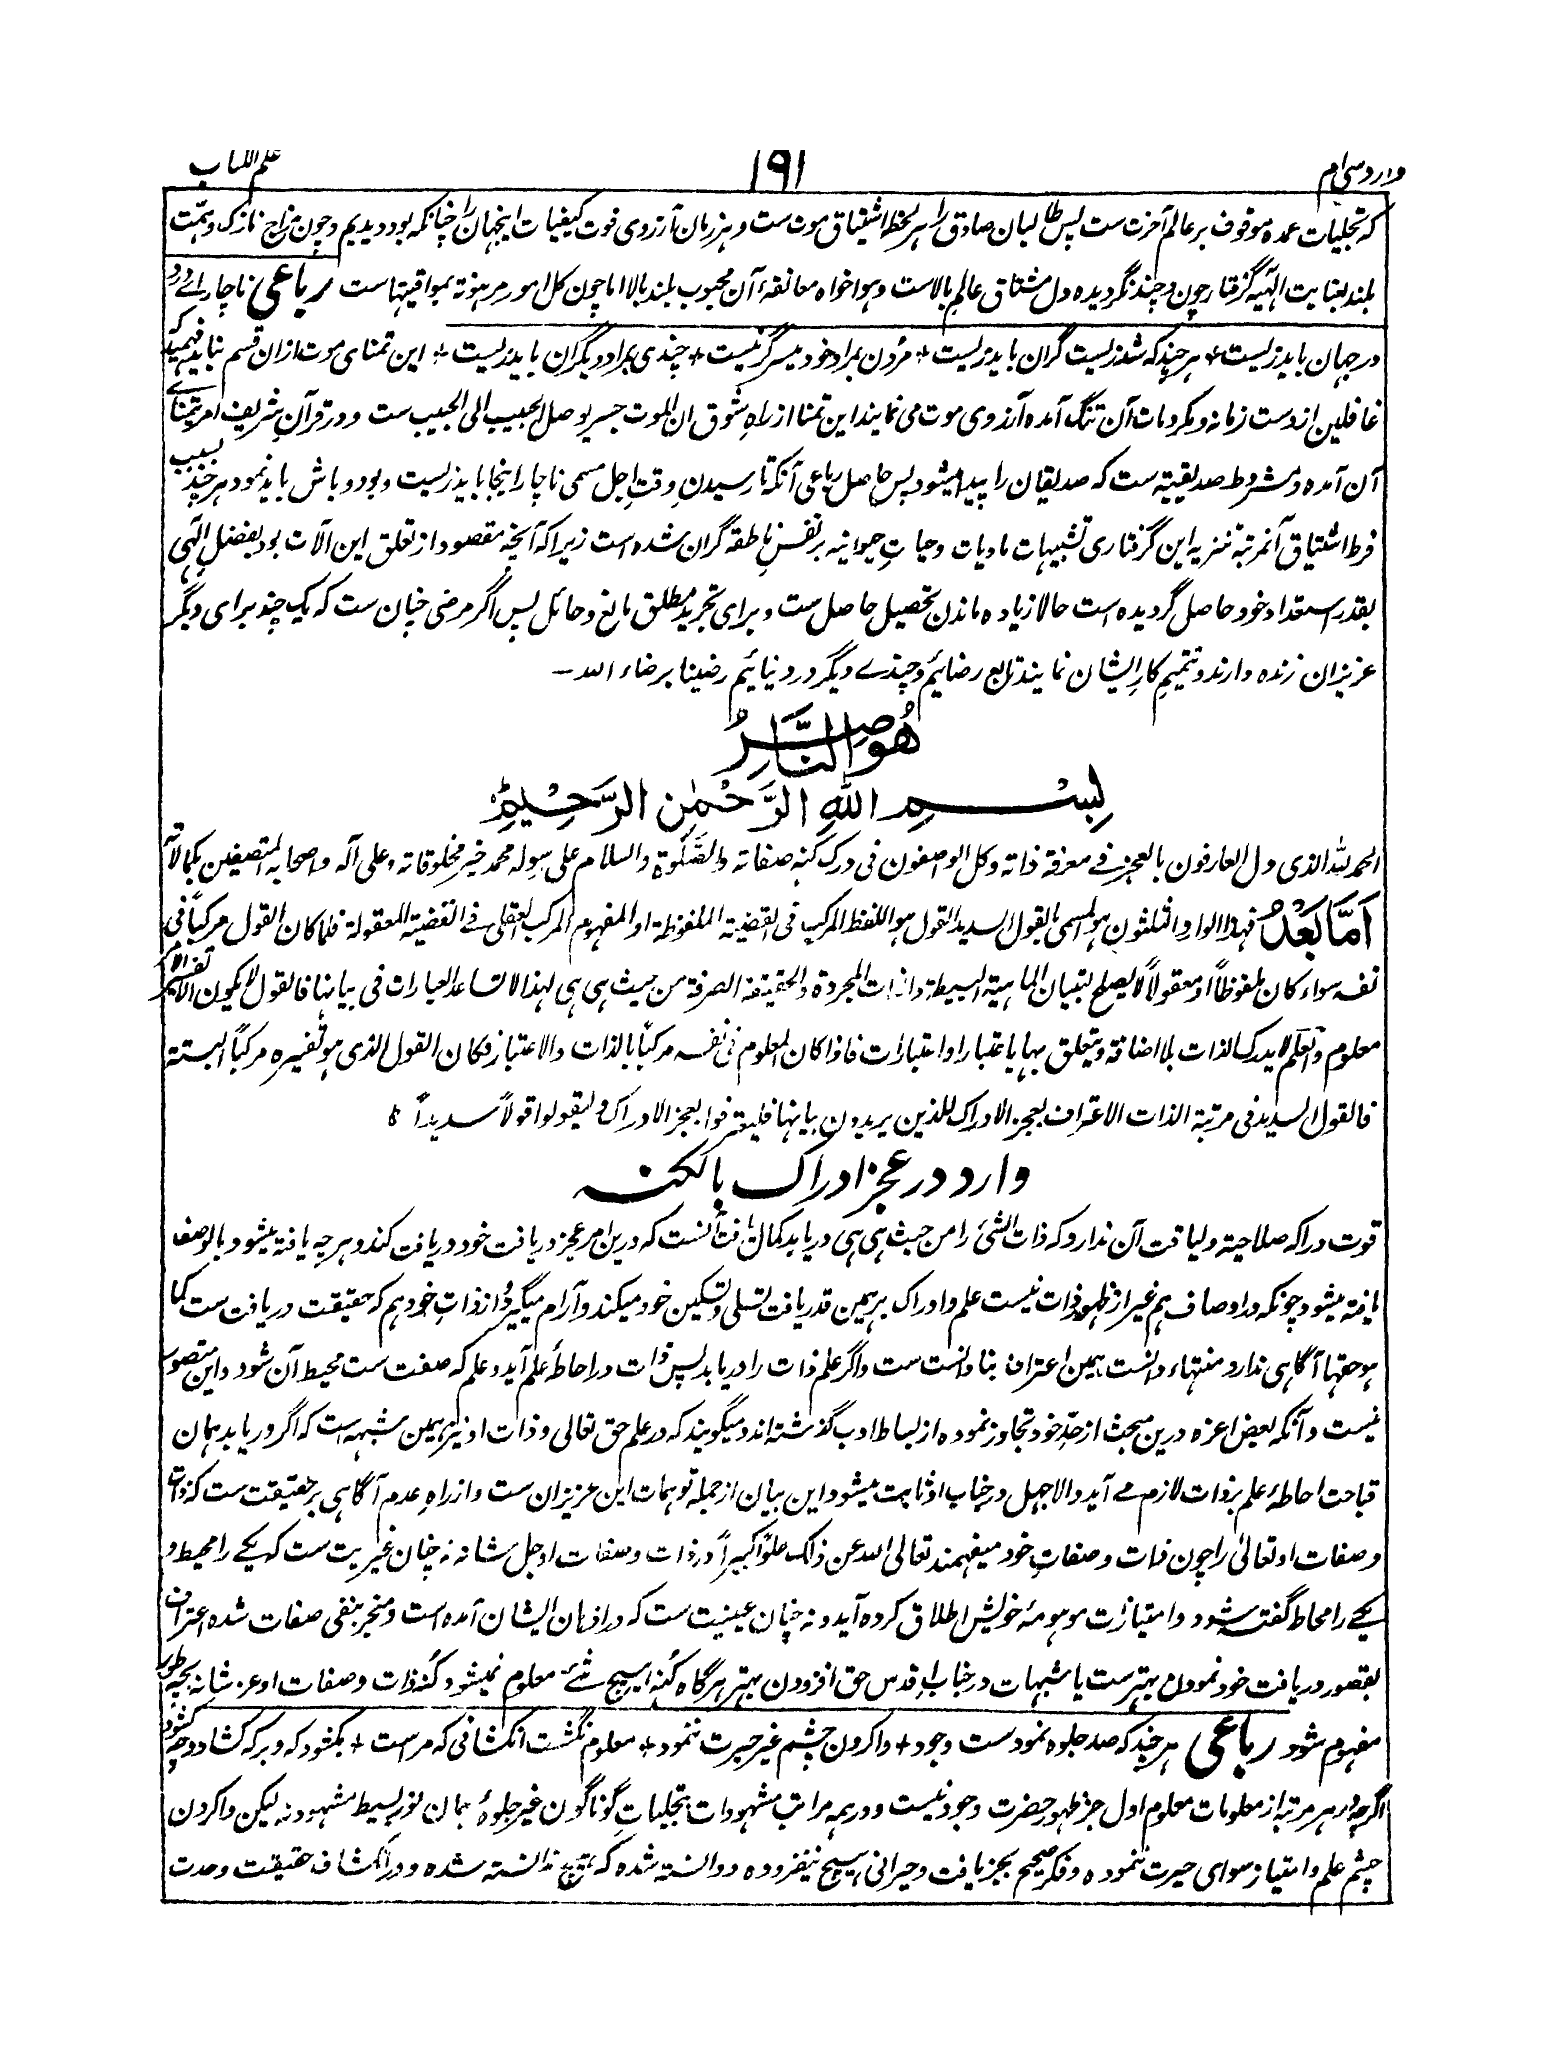 وارد سی ام
۱۹۱
علم الکتاب
که تجلیات عمده موقوف بر عالم آخرت ست پس طالبان صادق را هر لحظه اشتیاق موت ست و هر زمان آرزوی فوت کیفیات اینجهان را چنانکه بود دیدیم و چون مزاج نازک و همت
بلند بعنایت الهیه گرفتار چون و چند نگردیده دل مشتاق عالم بالاست و هواخواه معانقهٔ آن محبوب بلند بالا اما چون کل امور مرهونة بمواقیتهاست رباعی ناچار اے درد
در جهان باید زیست + هر چند که شد زیست گران باید زیست + مردن بمراد خود میسر گر نیست + چندی بمراد دیگران باید زیست + این تمنای موت ازان قسم نباید فهمید که
غافلین از دست زمانه و مکروهات آن تنگ آمده آرزوی موت می نمایند این تمنا از راه شوق ان الموت جسر یوصل الحبیب الی الحبیب ست و در قرآن شریف امر بتمنائے
آن آمده و مشروط صدیقیة ست که صدیقان را پیدا میشود پس حاصل رباعی آنکه تا رسیدن وقت اجل مسمی ناچار اینجا باید زیست و بود و باش باید نمود هر چند بسبب
فرط اشتیاق آنمرتبه تنزیه این گرفتاری تشبیهات مادیات و حیات حیوانیه بر نفس ناطقه گران شده است زیرا که آنچه مقصود از تعلق این آلات بود بفضل الهی
بقدر استعداد خود حاصل گردیده است حالا زیاده ماندن تحصیل حاصل ست و برای تجرید مطلق مانع و حائل پس اگر مرضی چنان ست که یک چند برای دیگر
عزیزان زنده دارند و تتمیم کار ایشان نمایند تابع رضائیم و چندے دیگر در دنیائیم رضینا برضاء الله ــ
هُوَ النَّاصِرُ
بِسْمِ اللهِ الرَّحْمٰنِ الرَّحِیْمِ
الحمد لله الذی دل العارفون بالعجز فے معرفة ذاته وکل الواصفون فی درک کنه صفاته والصَّلٰوة والسلام علی رسوله محمد خیر مخلوقاته وعلی آله واصحابه المتصفین بکمالاته
اَمَّا بَعْدُ فهذا الوارد الثلثون هو المسمی بالقول السدید القول هو اللفظ المرکب فی القضیة الملفوظة او المفهوم المرکب العقلی فے القضیة المعقولة فلما کان القول مرکباً فی
نفسه سواء کان ملفوظاً او معقولاً لا یصلح لتبیان الماهیة البسیطة والذات المجردة والحقیقة الصرفة من حیث هی هی لهذا لا تساعد العبارات فی بیانها فالقول لا یکون الا تفسیر الامر
معلوم والعلم لا یدرک الذات بلا اضافة ویتعلق بها باعتبار او اعتبارات فاذا کان المعلوم فی نفسه مرکباً بالذات والاعتبار فکان القول الذی هو تفسیره مرکباً البتة
فالقول السدید فی مرتبة الذات الاعتراف بعجز الادراک للذین یریدون بیانها فلیعترفوا بعجز الادراک ولیقولوا قولاً سدیداً
وارد در عجز ادراک بالکنه
قوت دراکه صلاحیة و لیاقت آن ندارد که ذات الشئ را من حیث هی هی دریابد کمال یافت آنست که درین امر عجز دریافت خود دریافت کند و هر چه یافته میشود بالوصف
یافته میشود چونکه در اوصاف هم غیر از ظهور ذات نیست علم و ادراک بر همین قدر یافت تسلی و تسکین خود میکند و آرام میگیرد و از ذات خود هم که حقیقت دریافت ست کما
هو حقها آگاهی ندارد و منتهاء دانست همین اعتراف بنادانست ست و اگر علم ذات را دریابد پس ذات در احاطهٔ علم آید و علم که صفت ست محیط آن شود و این متصور
نیست و آنکه بعض اعزه درین مبحث از حدِ خود تجاوز نموده از بساط ادب گذشته اند و میگویند که در علم حق تعالی و ذات او نیز همین شبهه است که اگر دریابد همان
قباحت احاطهٔ علم بر ذات لازم مے آید والا جهل در جناب او ثابت میشود این بیان از جمله توهمات این عزیزان ست و از راه عدم آگاهی بر حقیقت ست که ذات
و صفات او تعالیٰ را چون ذات و صفات خود میفهمند تعالی الله عن ذالک علوّاً کبیراً در ذات و صفات او جل شانه نه چنان غیریت ست که یکے را محیط و
یکے را محاط گفته شود و امتیازات موهومهٔ خویش اطلاق کرده آید و نه چنان عینیت ست که در اذهان ایشان آمده است و منجر بنفی صفات شده اعتراف
بقصور دریافت خود نمودن بهترست یا شبهات در جناب اقدس حق افزودن بهتر هر گاه کُنه هیچ شئے معلوم نمیشود کُنه ذات و صفات او عز شانه بچه طور
مفهوم شود رباعی هر چند که صد جلوه نمودست وجود + واکردن چشم غیر حیرت ننمود + معلوم نگشت انکشافی که مراست + بکشود که و بر که کشاد و چه کشود
اگرچه در هر مرتبه از معلومات معلوم اول جز ظهور حضرت وجود نیست و در همه مراتب مشهودات تجلیات گوناگون غیر جلوهٔ همان نور بسیط مشهود نه لیکن واکردن
چشم علم و امتیاز سوای حیرت ننموده و فکر صحیح بجز یافت و حیرانی هیچ نیفزوده و دانسته شده که هیچ ندانسته شده و در انکشاف حقیقت وحدت